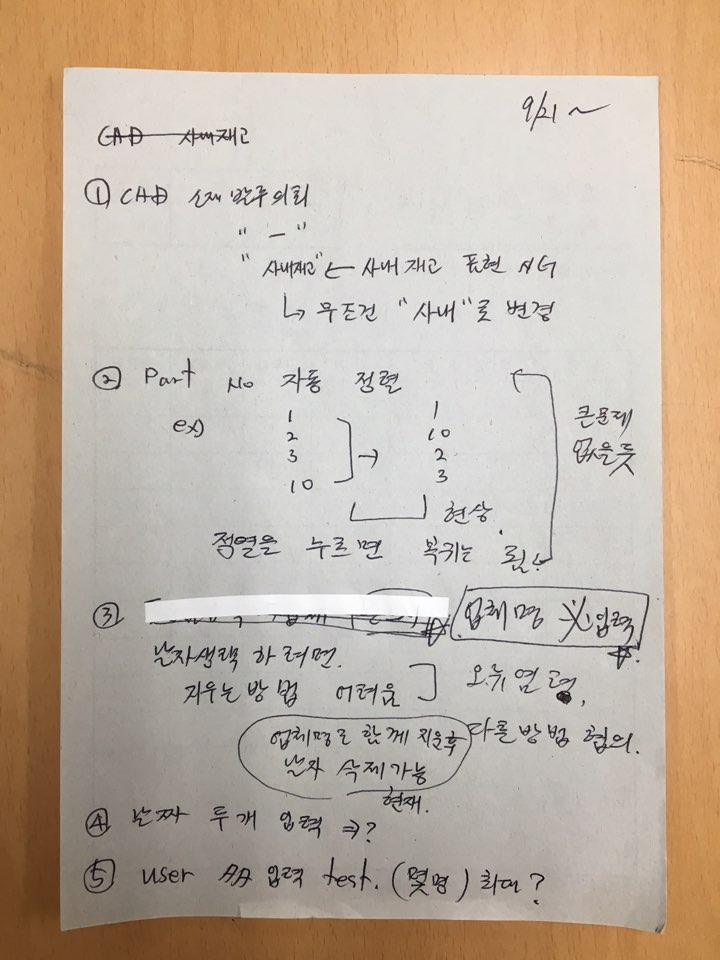 9/21 ~
CAD 사내재고
① CAD 소재 발주의뢰
" — "
"사내재고" ← 사내재고 표현 NG
↳ 무조건 "사내"로 변경
② Part No 자동 정렬
ex) 1 2 3 10 → 1 10 2 3
현상.
큰문제
없을듯
정열을 누르면 복귀는 됨
③ 업체명 입력
날자생택 하려면.
지우는방법 어려움
오류염려,
다른방법 협의.
업체명도 함께 지운후
날자 삭제가능
현재.
④ 날짜 두개 입력 ⇒?
⑤ user 多 입력 test. (몇명) 최대?